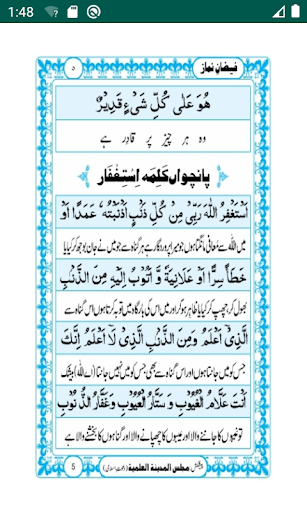 1:48
فیضانِ نماز
۵
هُوَ عَلٰی كُلِّ شَیْءٍ قَدِیْرٌ
وہ ہر چیز پر قادر ہے
پانچواں کلمہ اِسْتِغْفَار
اَسْتَغْفِرُ اللّٰهَ رَبِّیْ مِنْ كُلِّ ذَنْۢبٍ اَذْنَبْتُهٗ عَمَدًا اَوْ
میں اللہ سے معافی مانگتا ہوں جو میرا پروردگار ہے ہر گناہ سے جو میں نے جان بوجھ کر کیا یا
خَطَأً سِرًّا اَوْ عَلَانِیَةً وَّ اَتُوْبُ اِلَیْهِ مِنَ الذَّنْۢبِ
بھول کر چھپ کر کیا یا ظاہر ہو کر اور میں اس کی بارگاہ میں توبہ کرتا ہوں اس گناہ سے
الَّذِیْۤ اَعْلَمُ وَمِنَ الذَّنْۢبِ الَّذِیْ لَاۤ اَعْلَمُ اِنَّكَ
جس کو میں جانتا ہوں اور اس گناہ سے بھی جس کو میں نہیں جانتا (اے اللہ) بیشک
اَنْتَ عَلَّامُ الْغُیُوْبِ وَ سَتَّارُ الْعُیُوْبِ وَغَفَّارُ الذُّنُوْبِ
تو غیبوں کا جاننے والا اور عیبوں کا چھپانے والا اور گناہوں کا بخشنے والا ہے
پیشکش: مجلس المدینۃ العلمیۃ (دعوت اسلامی)
5